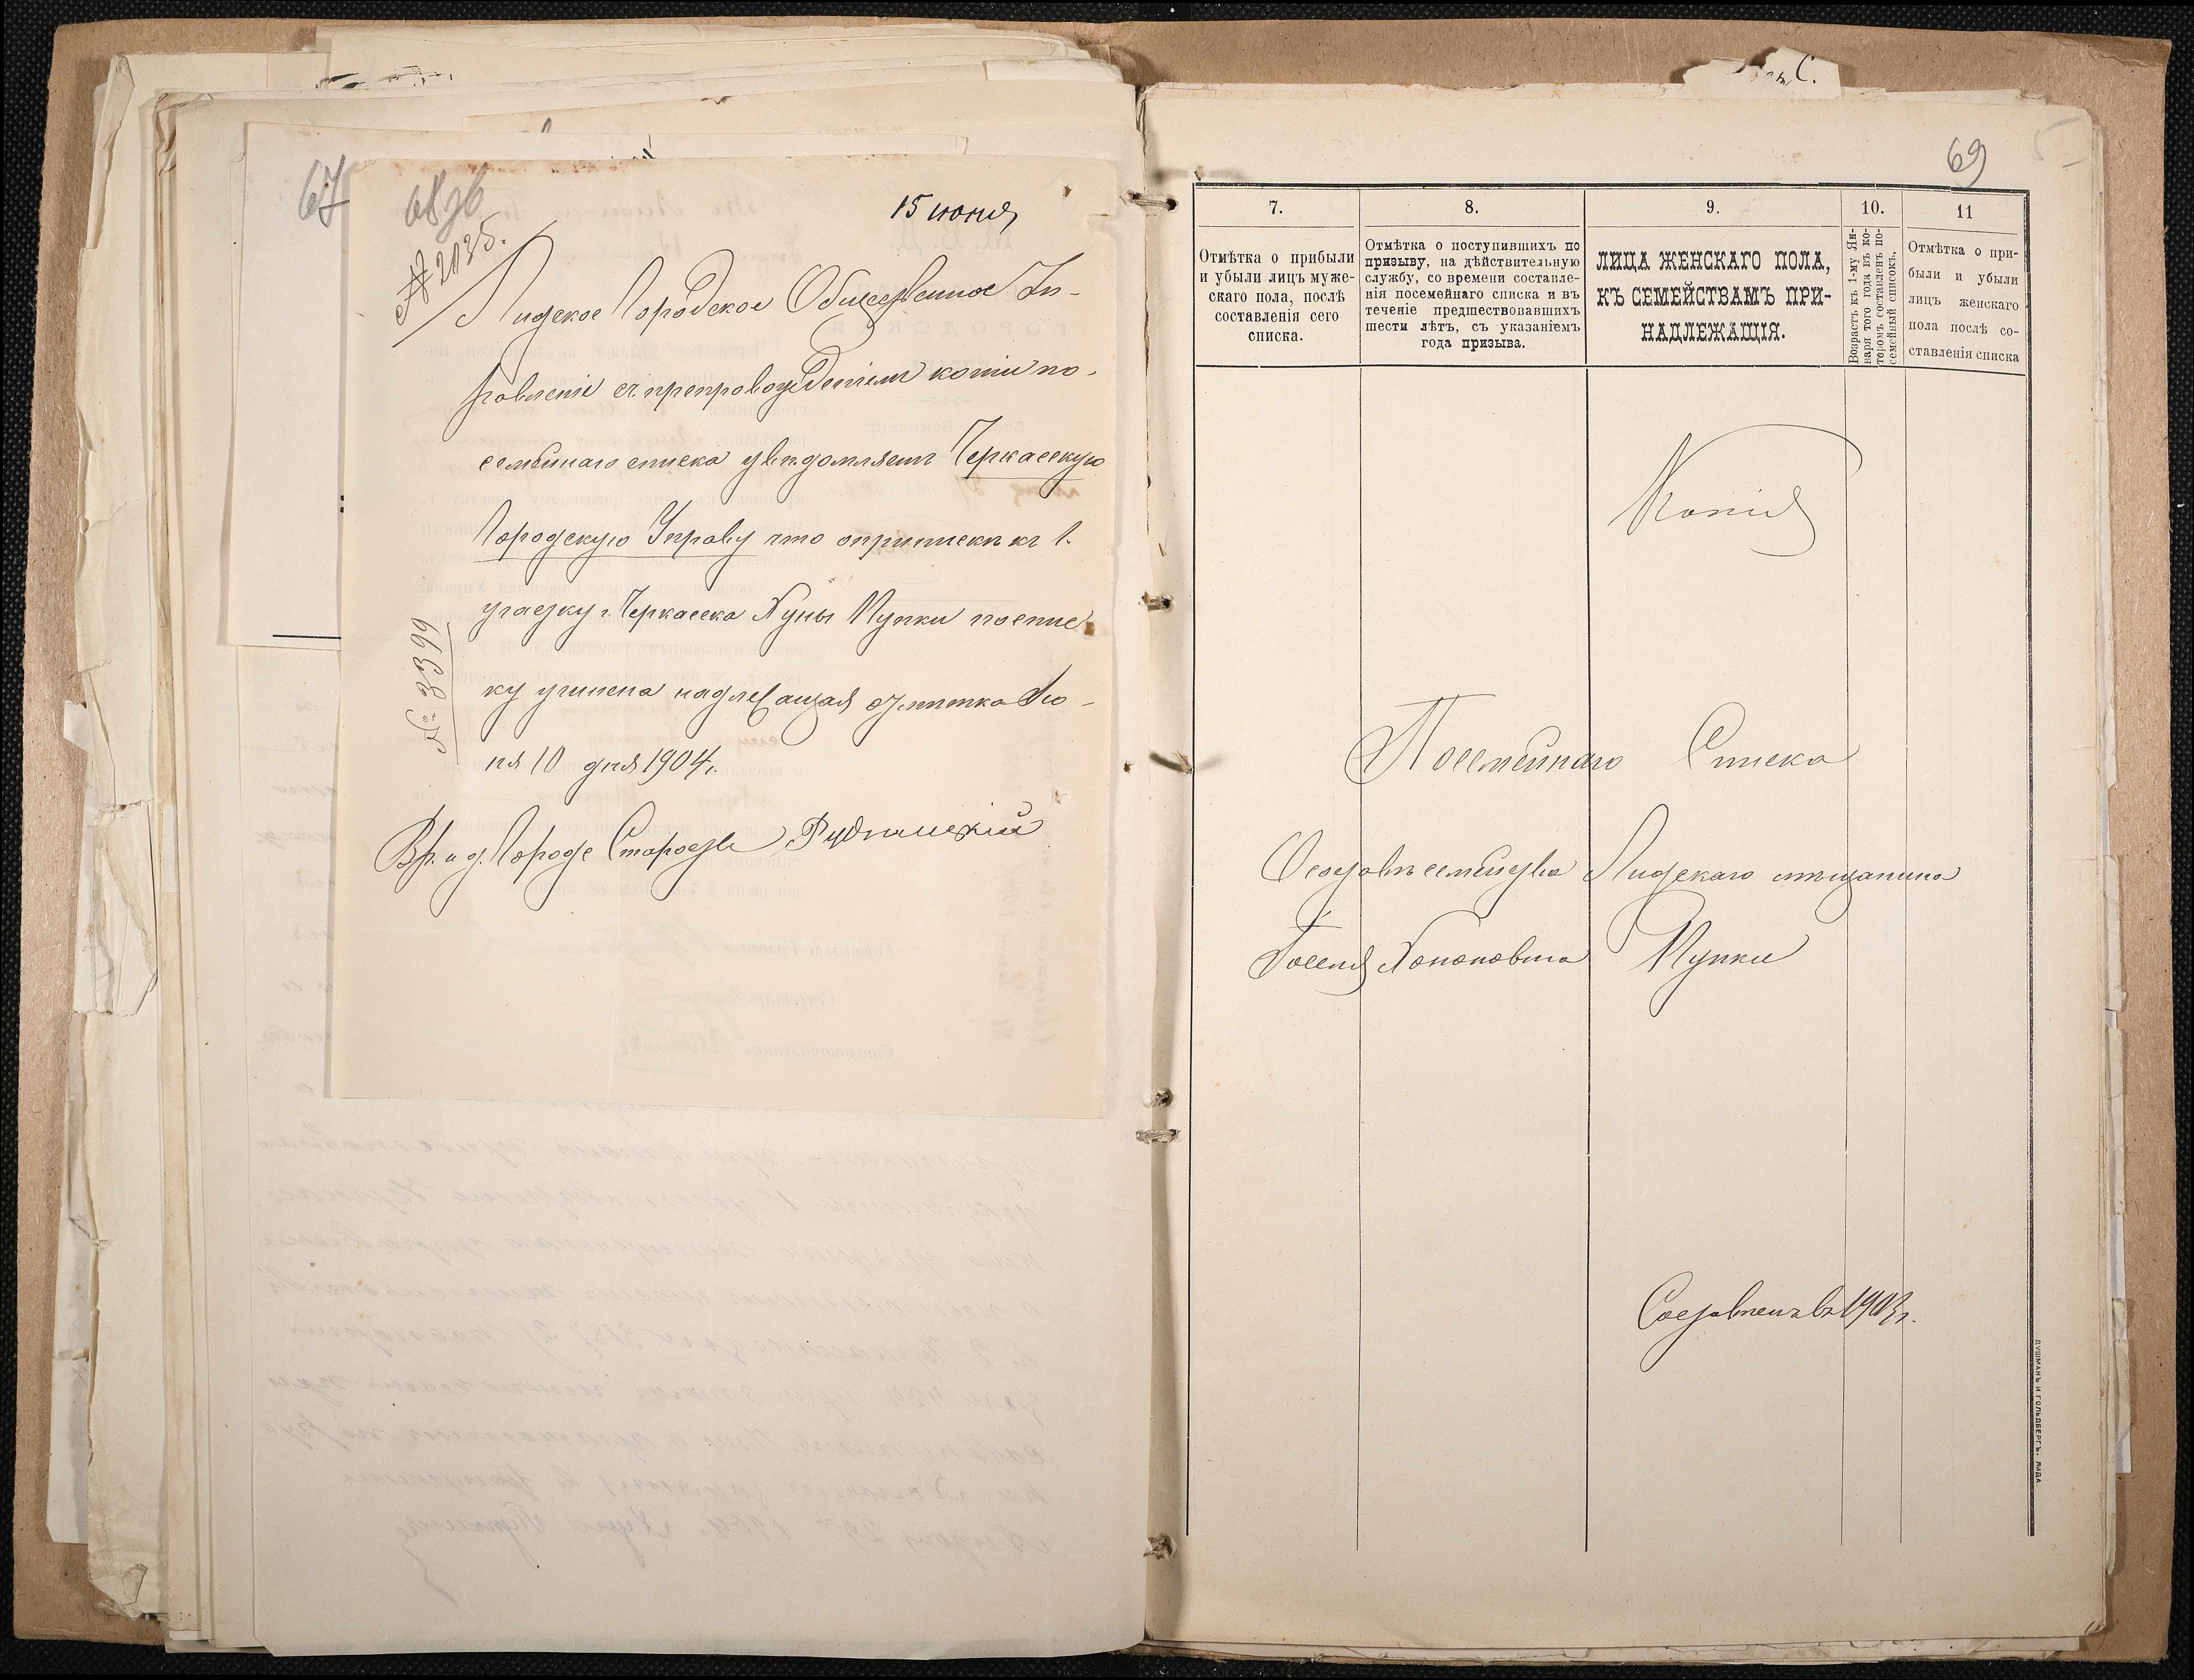 67
68 об
15 июня
№ 2135.
Лидское Городское Общественное Уп-
равленіе съ препровожденіемъ копіи по-
семейнаго списка увѣдомляетъ Черкасскую
Городскую Управу что о припискѣ къ 1.
участку г. Черкасска Хуны Пупки по спис
ку учинена надлежащая отмѣтка Ію-
ня 10 дня 1904 г.
Вр. и д. Городс Старосты Рудницкій
69
7.
8.
9.
10.
11
Отмѣтка о прибыли
и убыли лицъ муже-
скаго пола, послѣ
составленія сего
списка.
Отмѣтка о поступившихъ по
призыву, на дѣйствительную
службу, со времени составле-
нія посемейнаго списка и въ
теченіе предшествовавшихъ
шести лѣтъ, съ указаніемъ
года призыва.
ЛИЦА ЖЕНСКАГО ПОЛА,
КЪ СЕМЕЙСТВАМЪ ПРИ-
НАДЛЕЖАЩІЯ.
Возрастъ къ 1-му Ян-
варя того года въ ко-
торомъ составленъ по-
семейный списокъ.
Отмѣтка о при-
были и убыли
лицъ женскаго
пола послѣ со-
ставленія списка
Копія
Посемейнаго Списка
О составѣ семейства Лидскаго мѣщанина
Іоселя Хононовича Пупки
Составленъ въ 1903 г.
ДУШМАНЪ И ГОЛЬДБЕРГЪ, ЛИДА